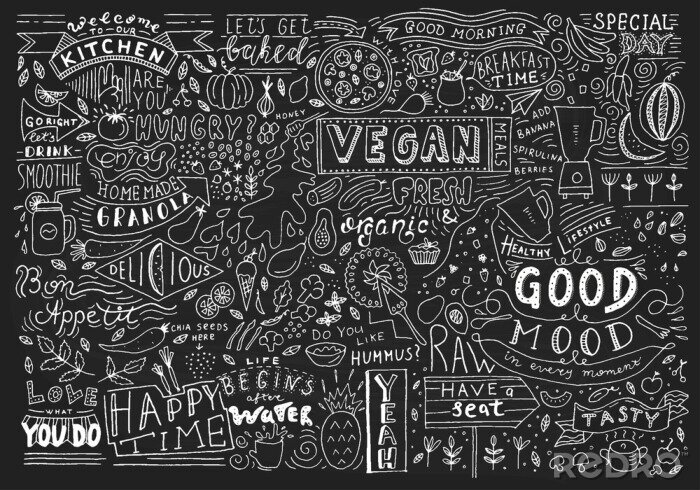 welcome
TO OUR
KITCHEN
ARE
YOU
HUNGRY?
LET'S GET
baked
GOOD MORNING
BREAKFAST
TIME
SPECIAL
DAY
GO RIGHT
let's
DRINK
SMOOTHIE
enjoy
HOME MADE
GRANOLA
HONEY
WITH LOVE
VEGAN
MEALS
ADD
BANANA
SPIRULINA
BERRIES
FRESH
&
organic
DELICIOUS
Bon
Appetit
CHIA SEEDS
HERE
HEALTHY LIFESTYLE
GOOD
MOOD
in every moment
DO YOU
LIKE
HUMMUS?
RAW
HAVE a
seat
LOLE
WHAT
YOU DO
HAPPY
TIME
LIFE
BEGINS
after
WATER
YEAH
TASTY
REDRO